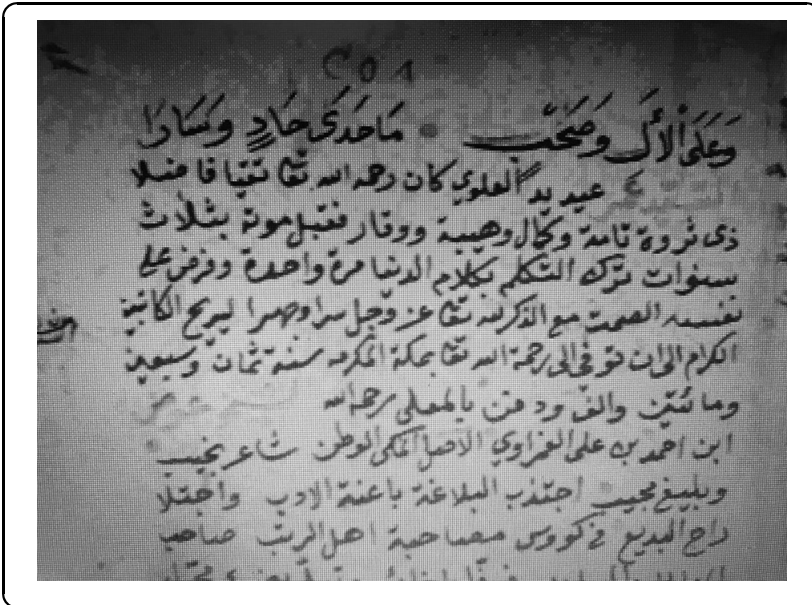 ٢٥٨
وعلى الآل وصحب ما حدى حاد وسارا
عيديد العلوي كان رحمه الله تقا تقيا فاضلا
ذى ثروة تامة وكمال وهيبة ووقار فقبل موته بثلاث
سنوات ترك التكلم بكلام الدنيا مرة واحدة وفرض على
نفسه الصمت مع الذكر لله تقا عز وجل سرا وجهرا ليريح الكاتبين
الكرام الى ان توفى الى رحمة الله تقا بمكة المكرمه سنة ثمان وسبعين
ومائتين والف ودفن بالمعلى رحمه الله
ابن احمد بن على الاصل المكى الوطن شاعر نجيب
وبليغ مجيب اجتذب البلاغة باعنة الادب واجتلا
راح البديع فى كووس مصاحبة اهل الرتب صاحب